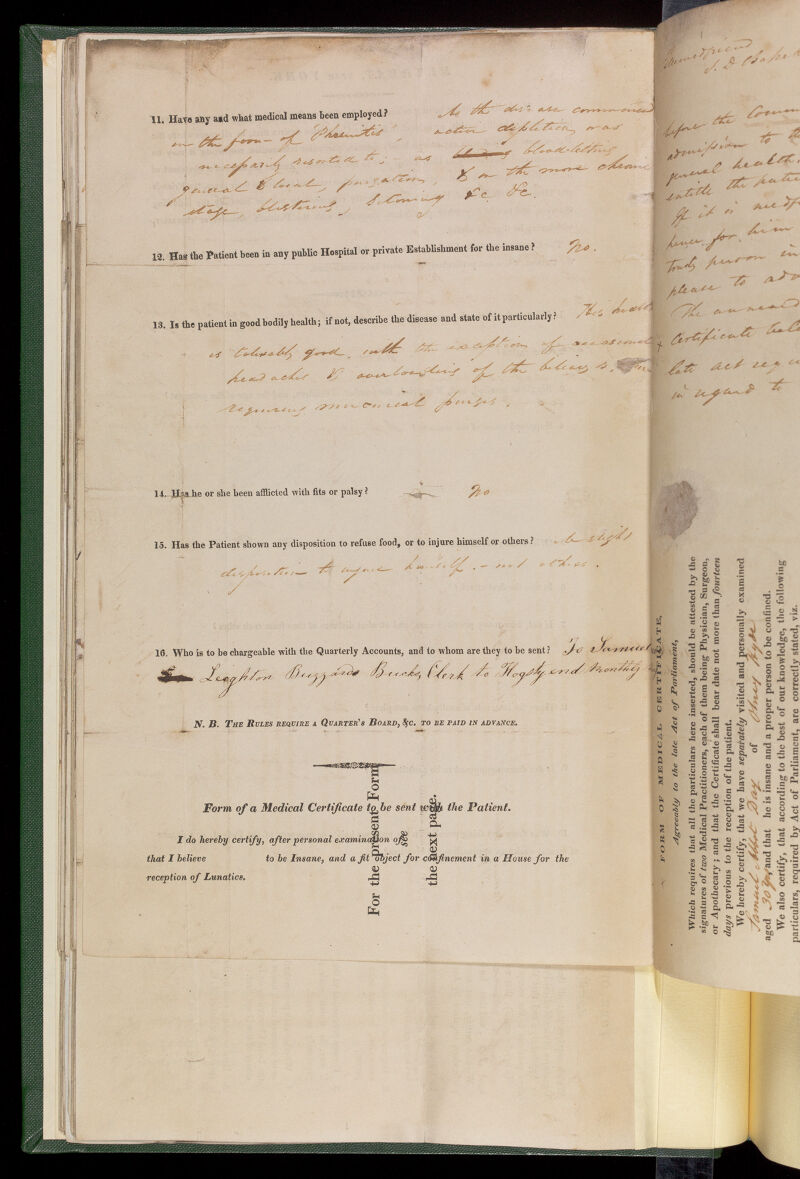 11. Have any and what medical means been employed? As the disease commenced
in the form of Phrenitis, active depletion was
necessarily resorted to; as bloodletting
general & local, purgation, & in the more chronic
stage, blistering, &c &c.
12. Has the Patient been in any public Hospital or private Establishment for the insane? No.
13. Is the patient in good bodily health; if not, describe the disease and state of it particularly? His health
is tolerably good, with the exception of occasional
head aches & overloading of the biliary
requiring mercurial purges.
14. Has he or she been afflicted with fits or palsy? No
15. Has the Patient shown any disposition to refuse food, or to injure himself or others? A slight
disposition to injure himself. - not others.
16. Who is to be chargeable with the Quarterly Accounts, and to whom are they to be sent? To Samuel
Leighton Buzzard Bucks, Clerk to
N. B. The Rules require a Quarter's Board, &c. to be paid in advance.
Form of a Medical Certificate to be sent with the Patient.
I do hereby certify, after personal examination of
that I believe to be Insane, and a fit object for confinement in a House for the
reception of Lunatics.
For the present Form
see
the next page.
before the
admission to
general health.
entitle the
If it is
for him
person in
please to
The annexed
Certificate
late act
in regard to
FORM OF MEDICAL CERTIFICATE,
Agreeably to the late Act of Parliament,
Which requires that all the particulars here inserted, should be attested by the
signatures of two Medical Practitioners, each of them being Physician, Surgeon,
or Apothecary; and that the Certificate shall bear date not more than fourteen
days previous to the reception of the patient.
We hereby certify, that we have separately visited and personally examined
Samuel Abbot Day of
aged 30 and that he is insane and a proper person to be confined.
We also certify, that according to the best of our knowledge, the following
particulars, required by Act of Parliament, are correctly stated, viz.